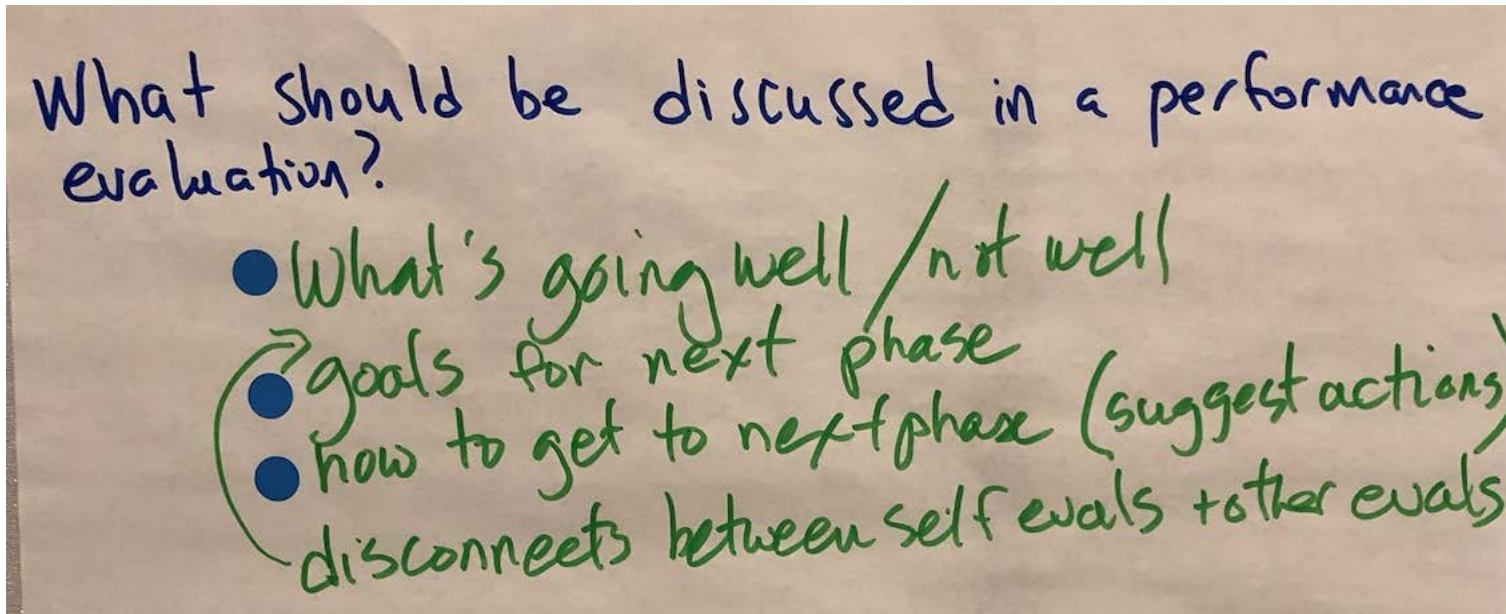 What should be discussed in a performance
evaluation?
• What's going well / not well
• goals for next phase
• how to get to next phase (suggest actions)
disconnects between self evals + other evals